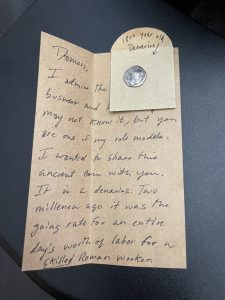 1800 year old
Denarius
Damon,
I admire the
business and
may not know it, but you
are one of my role models.
I wanted to share this
ancient coin with you.
It is a denarius. Two
millenea ago it was the
going rate for an entire
day's worth of labor for a
skilled Roman worker.